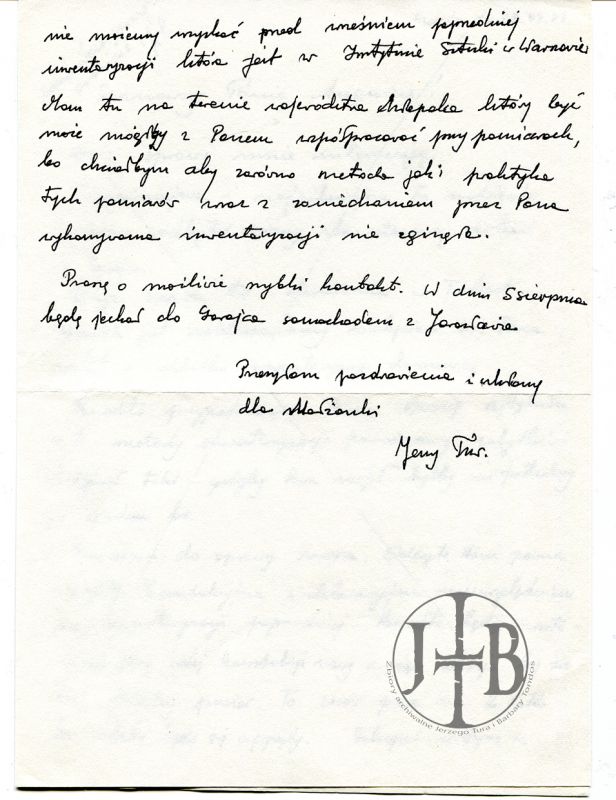 nie możemy uzyskać przed wrześniem poprzedniej
inwentaryzacji która jest w Instytucie Sztuki w Warszawie
Mam tu na terenie województwa chłopaka który być
może mógłby z Panem współpracować przy pomiarach,
bo chciałbym aby zarówno metoda jak i praktyka
tych pomiarów wraz z zaniechaniem przez Pana
wykonywania inwentaryzacji nie zginęła.
Proszę o możliwie szybki kontakt. W dniu 5 sierpnia
będę jechał do Gorajca samochodem z Jarosławia
Przesyłam pozdrowienia i ukłony
dla Małżonki
Jerzy Tur.
J†B
Zbiory archiwalne Jerzego Tura i Barbary Tondos